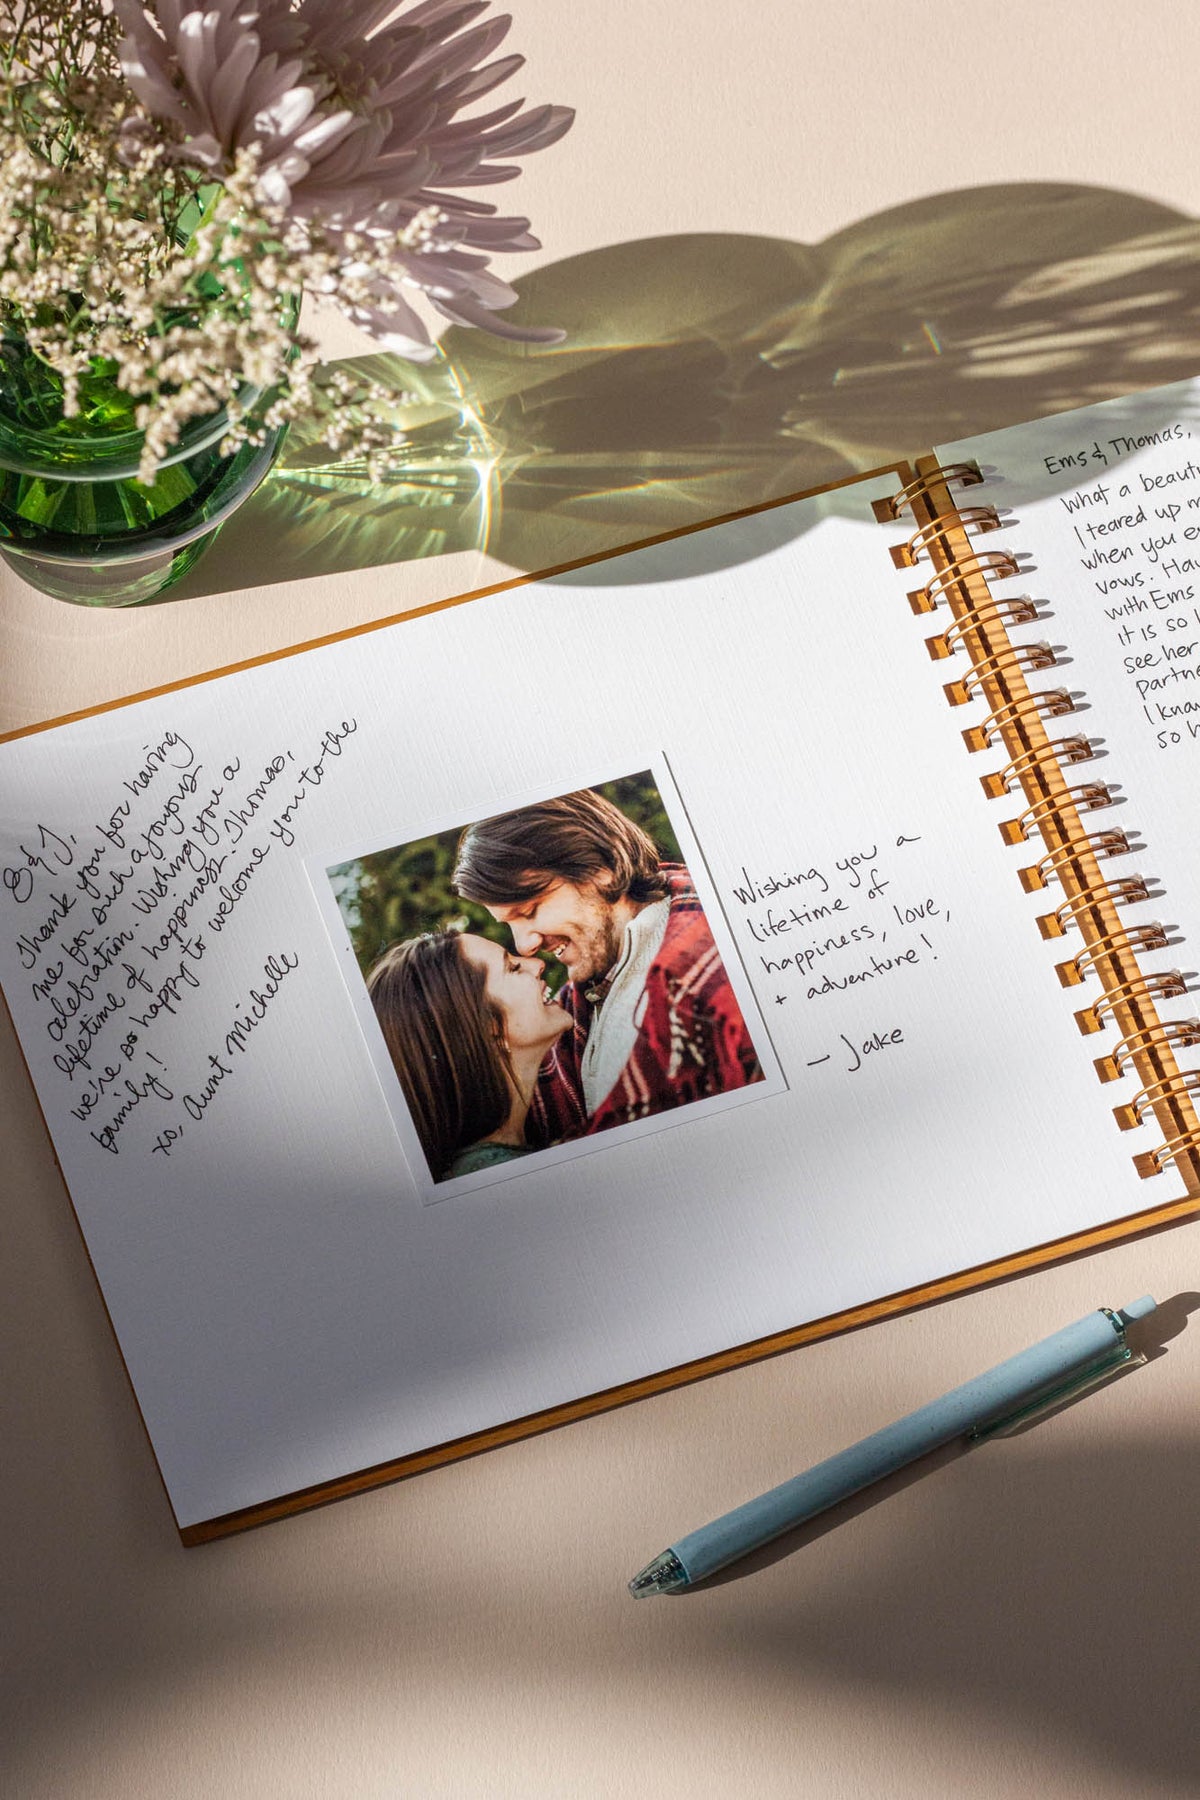 E & T,
Thank you for having
me for such a joyous
celebration. Wishing you a
lifetime of happiness. Thomas,
we're so happy to welcome you to the
family!
xo, Aunt Michelle
Wishing you a
lifetime of
happiness, love,
+ adventure!
— Jake
Ems & Thomas,
What a
I teared up
when you
vows.
with Ems
it is so
see her
I
so